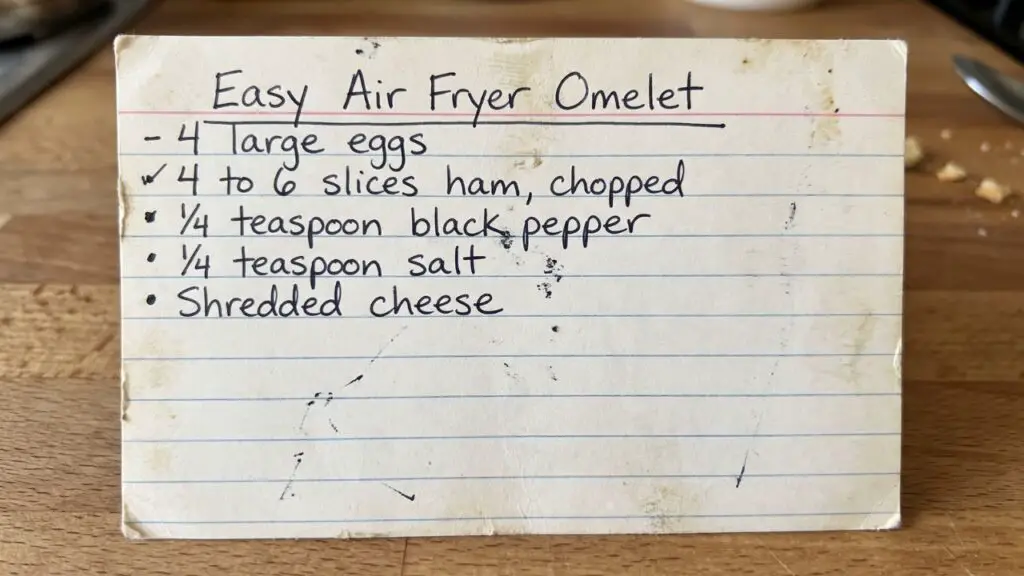 Easy Air Fryer Omelet
- 4 large eggs
✓ 4 to 6 slices ham, chopped
• ¼ teaspoon black pepper
• ¼ teaspoon salt
• Shredded cheese